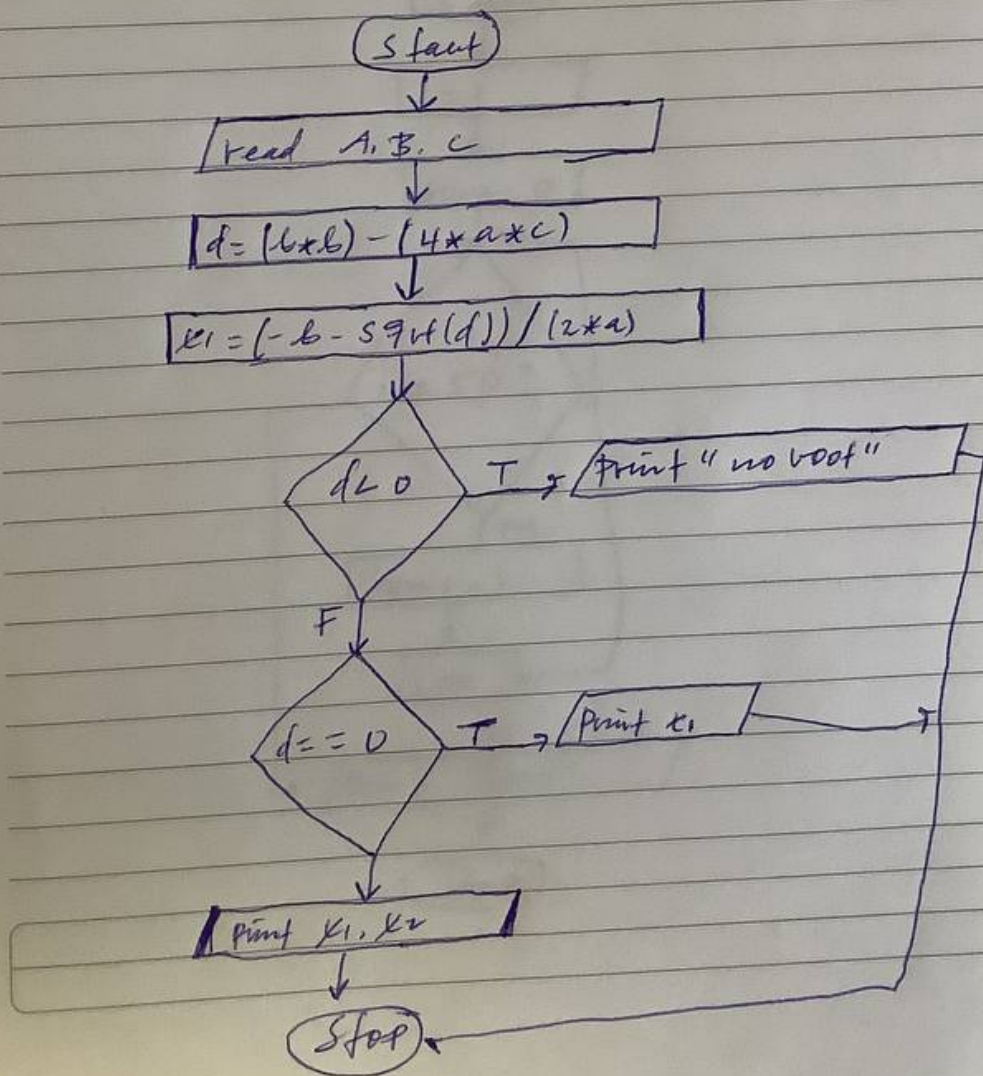 Start
read A, B, C
d = (b*b) - (4*a*c)
x1 = (-b - sqrt(d)) / (2*a)
d < 0
T
Print "no root"
F
d == 0
T
Print x1
Print x1, x2
Stop